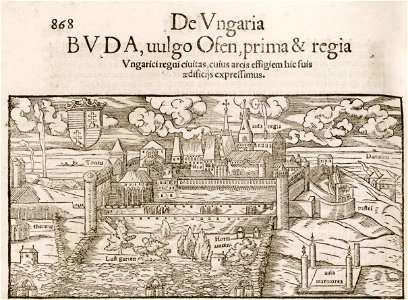 868
De Vngaria
BVDA, uulgo Ofen, prima & regia
Vngarici regni ciuitas, cuius arcis effigiem hic suis
ædificijs expressimus.
aula
regia
Tonaw
Danubius
thurnn
Lust garten
aula
marmorea